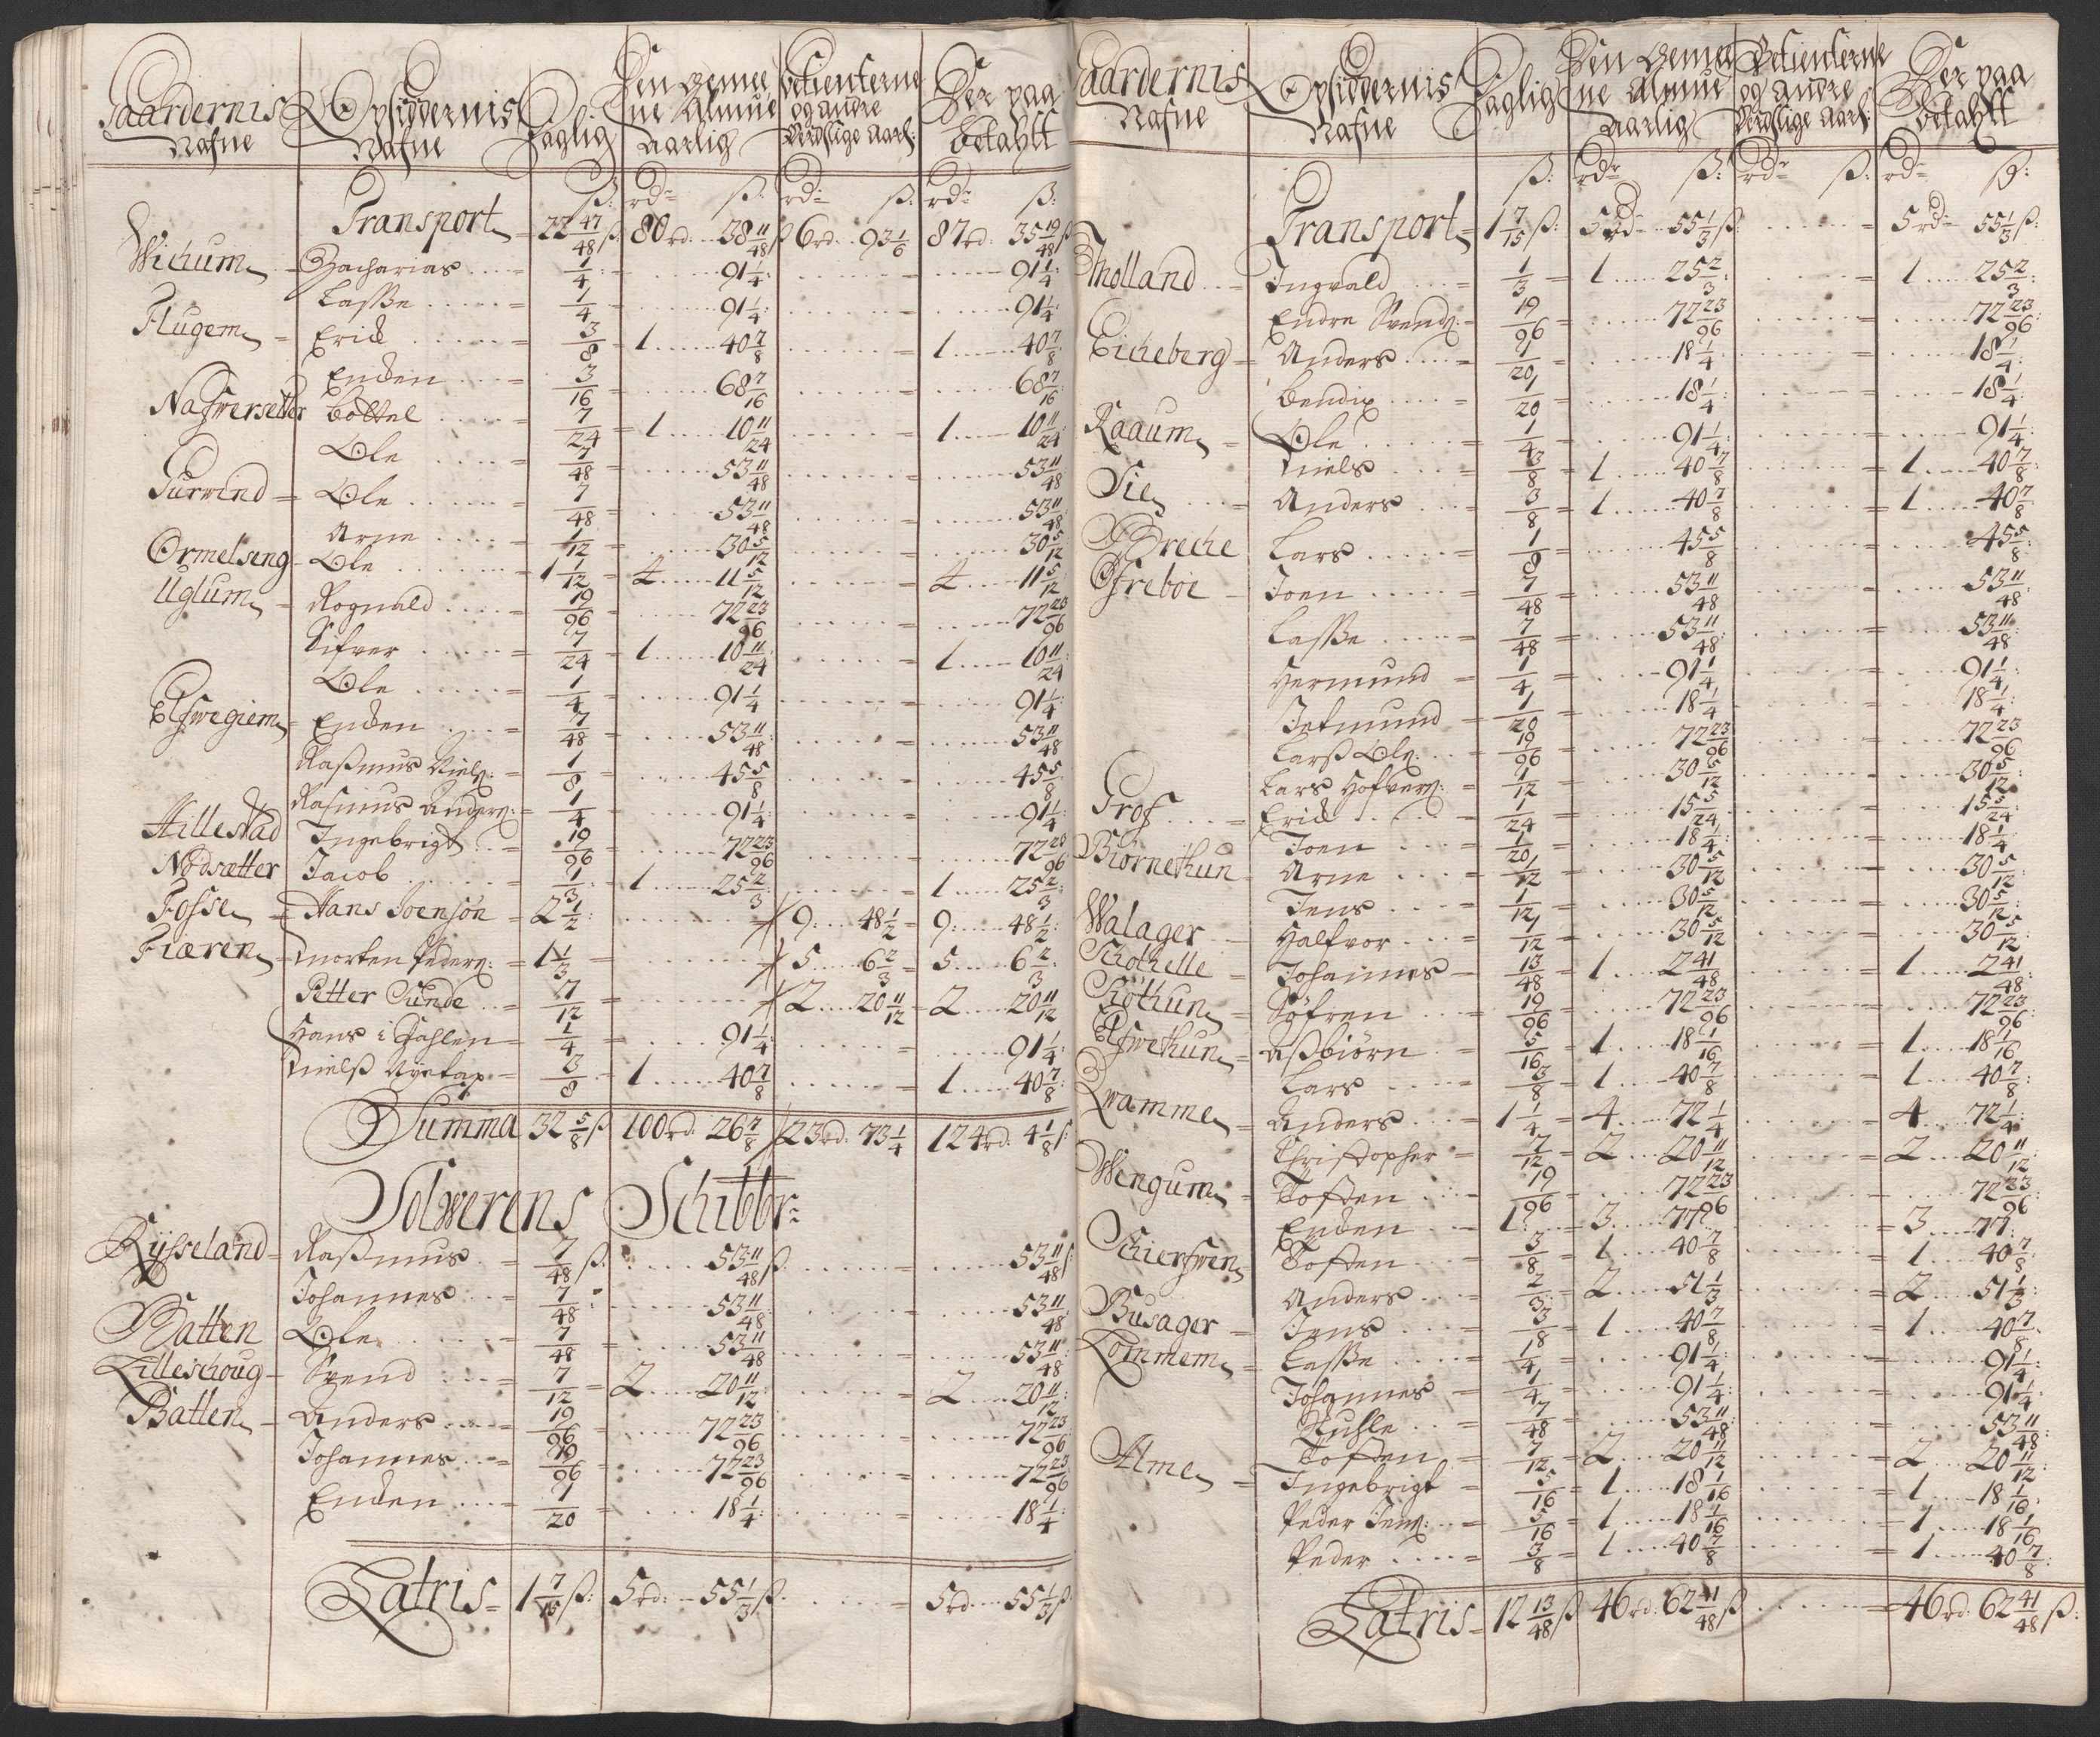 Gaardernis Nafne | Opsiddernis Nafne | Daglig | Den Gemee ne Almue aarlig | Betienterne og andre Verdslige aarl: | Der paa betahlt
ß: | rdr ß: | rdr ß: | rdr ß:
Transport 22 47/48 ß: 80 rd. 38 11/48 ß 6 rd. 93 1/6 87 rd. 35 19/48 ß
Wichum Zacharias 1/4 91 1/4 91 1/4
Lasse 1/4 91 1/4 91 1/4
Flugem Erick 3/8 1 40 7/8 1 40 7/8
Encken 3/16 68 7/16 68 7/16
Nafwersetter Bottel 7/24 1 10 11/24 1 10 11/24
Ole 7/48 53 11/48 53 11/48
Turwend Ole 7/48 53 11/48 53 11/48
Arne 1/12 30 5/12 30 5/12
Ormelseng Ole 1 1/12 4 11 5/12 4 11 5/12
Uglum Rognald 19/96 72 23/96 72 23/96
Sifver 7/24 1 10 11/24 1 10 11/24
Ole 1/4 91 1/4 91 1/4
Elfwegiem Encken 7/48 53 11/48 53 11/48
Rasmus Niels: 1/8 45 5/8 45 5/8
Rasmus Anders: 1/4 91 1/4 91 1/4
Hillestad Ingebrigt 19/96 72 23/96 72 23/96
Nodsætter Jacob 1/3 1 25 2/3 1 25 2/3
Fosse Hans Joensön 2 1/2 9 48 1/2 9 48 1/2
Fiæren Morten Peders: 1 1/3 5 6 2/3 5 6 2/3
Petter Sunde 7/12 2 20 11/12 2 20 11/12
Hans i Dahlen 1/4 91 1/4 91 1/4
Nielß Nyetap 3/8 1 40 7/8 1 40 7/8
Summa 32 5/8 ß 100 rd. 26 7/8 23 rd. 73 1/4 124 rd. 4 1/8 ß:
Solwerens Schibbr:
Rysseland Rasmus 7/48 ß: 53 11/48 ß 53 11/48 ß
Johannes 7/48 53 11/48 53 11/48
Batten Ole 7/48 53 11/48 53 11/48
Lilleschoug Svend 7/12 2 20 11/12 2 20 11/12
Batten Anders 19/96 72 23/96 72 23/96
Johannes 19/96 72 23/96 72 23/96
Encken 1/20 18 1/4 18 1/4
Latris 1 7/15 ß: 5 rd: 55 1/3 ß 5 rd. 55 1/3 ß
Gaardernis Nafne | Opsiddernis Nafne | Daglig | Den Gemee ne Almue aarlig | Betienterne og andre Verdslige aarl: | Der paa betahlt
ß: | rdr ß: | rdr ß: | rdr ß:
Transport 1 7/15 ß: 5 rd 55 1/3 ß 5 rd 55 1/3 ß:
Molland Ingvald 1/3 1 25 2/3 1 25 2/3
Endre Svends: 19/96 72 23/96 72 23/96
Eicheberg Anders 1/20 18 1/4 18 1/4
Bendix 1/20 18 1/4 18 1/4
Raaum Ole 1/4 91 1/4 91 1/4
Niels 3/8 1 40 7/8 1 40 7/8
Sie Anders 3/8 1 40 7/8 1 40 7/8
Breche Lars 1/8 45 5/8 45 5/8
Ofreboe Joen 7/48 53 11/48 53 11/48
Lasse 7/48 53 11/48 53 11/48
Hermund 1/4 91 1/4 91 1/4
Jetmund 1/20 18 1/4 18 1/4
Larß Ols: 19/96 72 23/96 72 23/96
Lars Hofvers: 1/12 30 5/12 30 5/12
Grof Erick 1/24 15 5/24 15 5/24
Joen 1/20 18 1/4 18 1/4
Biornethun Arne 1/12 30 5/12 30 5/12
Jens 1/12 30 5/12 30 5/12
Walager Halfvor 1/12 30 5/12 30 5/12
Schothelle Johannes 13/48 1 2 41/48 1 2 41/48
Siöthun Söfren 19/96 72 23/96 72 23/96
Elfwethun Aßbiörn 5/16 1 18 1/16 1 18 1/16
Lars 3/8 1 40 7/8 1 40 7/8
Qwamme Anders 1 1/4 4 72 1/4 4 72 1/4
Christopher 7/12 2 20 11/12 2 20 11/12
Wengum Tosten 19/96 72 23/96 72 23/96
Encken 1 3 77 3 77
Schierfwen Tosten 3/8 1 40 7/8 1 40 7/8
Anders 2/3 2 51 1/3 2 51 1/3
Busager Jens 3/8 1 40 7/8 1 40 7/8
Lommem Lasse 1/4 91 1/4 91 1/4
Johannes 1/4 91 1/4 91 1/4
7/48 53 11/48 53 11/48
Tosten 7/12 2 20 11/12 2 20 11/12
Alme Ingebrigt 5/16 1 18 1/16 1 18 1/16
Peder Jens: 5/16 1 18 1/16 1 18 1/16
Peder 3/8 1 40 7/8 1 40 7/8
Latris 12 13/48 ß 46 rd. 62 41/48 ß 46 rd. 62 41/48 ß: